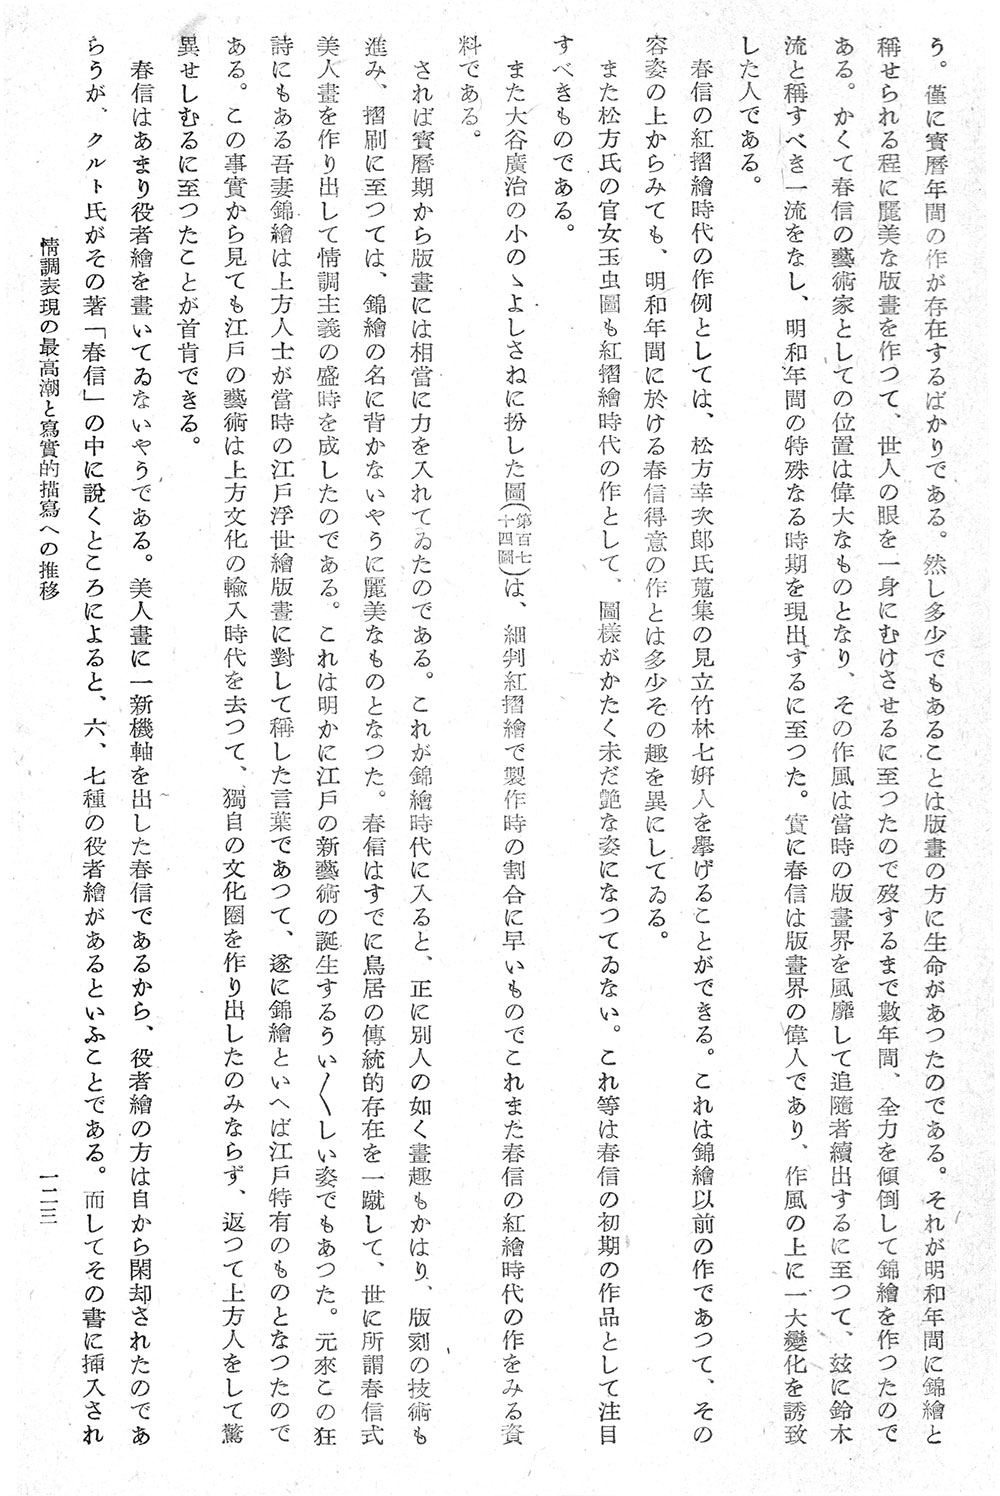 う。僅に寳曆年間の作が存在するばかりである。然し多少でもあることは版畫の方に生命があつたのである。それが明和年間に錦繪と
稱せられる程に麗美な版畫を作つて、世人の眼を一身にむけさせるに至つたので歿するまで數年間、全力を傾倒して錦繪を作つたので
ある。かくて春信の藝術家としての位置は偉大なものとなり、その作風は當時の版畫界を風靡して追隨者續出するに至つて、玆に鈴木
流と稱すべき一流をなし、明和年間の特殊なる時期を現出するに至つた。實に春信は版畫界の偉人であり、作風の上に一大變化を誘致
した人である。
春信の紅摺繪時代の作例としては、松方幸次郎氏蒐集の見立竹林七姸人を擧げることができる。これは錦繪以前の作であつて、その
容姿の上からみても、明和年間に於ける春信得意の作とは多少その趣を異にしてゐる。
また松方氏の官女玉虫圖も紅摺繪時代の作として、圖樣がかたく未だ艶な姿になつてゐない。これ等は春信の初期の作品として注目
すべきものである。
また大谷廣治の小のゝよしさねに扮した圖(第百七十四圖)は、細判紅摺繪で製作時の割合に早いものでこれまた春信の紅繪時代の作をみる資
料である。
されば寳曆期から版畫には相當に力を入れてゐたのである。これが錦繪時代に入ると、正に別人の如く畫趣もかはり、版刻の技術も
進み、摺刷に至つては、錦繪の名に背かないやうに麗美なものとなつた。春信はすでに鳥居の傳統的存在を一蹴して、世に所謂春信式
美人畫を作り出して情調主義の盛時を成したのである。これは明かに江戶の新藝術の誕生するうい〱しい姿でもあつた。元來この狂
詩にもある吾妻錦繪は上方人士が當時の江戶浮世繪版畫に對して稱した言葉であつて、遂に錦繪といへば江戶特有のものとなつたので
ある。この事實から見ても江戶の藝術は上方文化の輸入時代を去つて、獨自の文化圈を作り出したのみならず、返つて上方人をして驚
異せしむるに至つたことが首肯できる。
春信はあまり役者繪を畫いてゐないやうである。美人畫に一新機軸を出した春信であるから、役者繪の方は自から閑却されたのであ
らうが、クルト氏がその著「春信」の中に說くところによると、六、七種の役者繪があるといふことである。而してその書に揷入され
情調表現の最高潮と寫實的描寫への推移
一二三